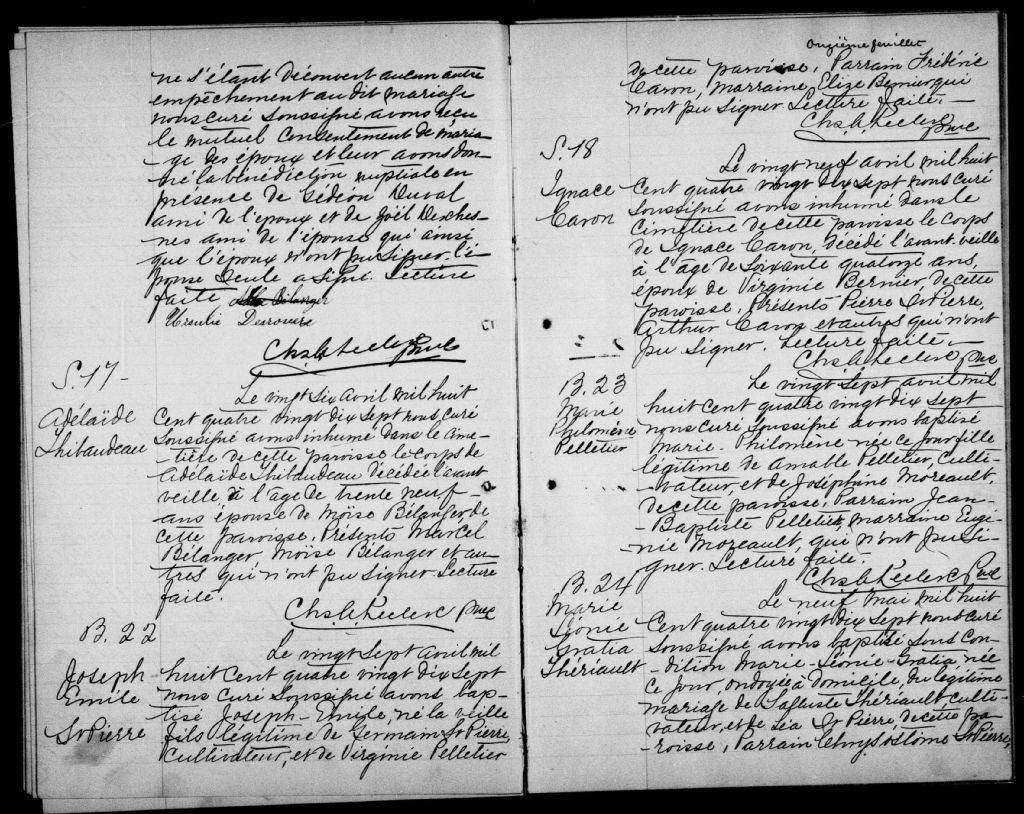 ne s'étant découvert aucun autre
empêchement au dit mariage
nous curé soussigné avons reçu
le mutuel consentement de maria-
ge des époux et leur avons don-
né la bénédiction nuptiale en
présence de Gédéon Duval
ami de l'époux et de Joël Duches-
nes ami de l'épouse qui ainsi
que l'époux n'ont pu signer. L'é-
pouse seule a signé. Lecture
faite
Bélanger
Ursulie Desrouers
Chs. G. Leclerc Ptre
S. 17 -
Adélaïde
Thibaudeau
Le vingt six avril mil huit
cent quatre vingt dix sept nous curé
soussigné avons inhumé dans le cime-
tière de cette paroisse le corps de
Adélaïde Thibaudeau décédée l'avant
veille à l'âge de trente neuf -
ans épouse de Moïse Bélanger, de
cette paroisse. Présents Marcel
Bélanger Moïse Bélanger et au-
tres qui n'ont pu signer. Lecture
faite.
Chs. G. Leclerc Ptre
B. 22
Joseph
Emile
St Pierre
Le vingt sept avril mil
huit cent quatre vingt dix sept
nous curé soussigné avons bap-
tisé Joseph-Emile, né la veille
fils légitime de Germain St Pierre,
cultivateur, et de Virginie Pelletier
Onzième feuillet
de cette paroisse. Parrain Frédéric
Caron, marraine Elize Bernier qui
n'ont pu signer Lecture faite. -
Chs. G. Leclerc Ptre
S. 18
Ignace
Caron
Le vingt neuf avril mil huit
cent quatre vingt dix sept nous curé
soussigné avons inhumé dans le
cimetière de cette paroisse le corps
de Ignace Caron, décédé l'avant veille
à l'âge de soixante quatorze ans,
époux de Virginie Bernier, de cette
paroisse. Présents Pierre St Pierre,
Arthur Caron et autres qui n'ont
pu signer. Lecture faite. -
Chs. G. Leclerc Ptre
B. 23
Marie
Philomène
Pelletier
Le vingt sept avril mil
huit cent quatre vingt dix sept
nous curé soussigné avons baptisé
Marie-Philomène née ce jour fille
légitime de Amable Pelletier, culti-
vateur, et de Joséphine Moreault,
de cette paroisse. Parrain Jean-
Baptiste Pelletier, marraine Eugé-
nie Moreault, qui n'ont pu si-
gner. Lecture faite.
Chs. G. Leclerc Ptre
B. 24
Marie
Léonie
Gratia
Thériault
Le neuf mai mil huit
cent quatre vingt dix sept nous curé
soussigné avons baptisé sous con-
dition Marie-Léonie-Gratia, née
ce jour, ondoyée à domicile, du légitime
mariage de Baptiste Thériault, culti-
vateur, et de Léa St Pierre de cette pa-
roisse, Parrain Chrysostôme St Pierre,